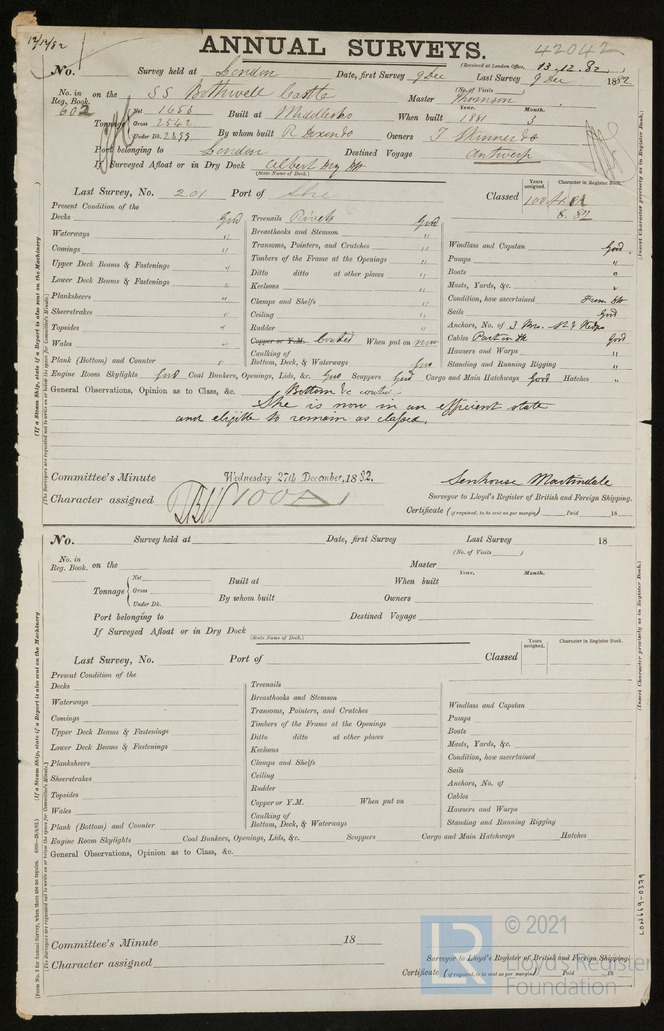 12/12/82
ANNUAL SURVEYS.
42042
(Received at London Office, 13.12.82)
No. Survey held at London Date, first Survey 9 Dec Last Survey 9 Dec 1882
(No. of Visits )
No. in Reg. Book. 602 on the SS Bothwell Castle Master Thomson
Year. Month.
Tonnage Net 1653 Built at Middlesbo When built 1881 3
Gross 2542
Under Dk. By whom built R Dixon &Co Owners T Skinner &Co
Port belonging to London Destined Voyage Antwerp
If Surveyed Afloat or in Dry Dock Albert Dry Dk
(State Name of Dock.)
Years assigned. Character in Register Book.
Last Survey, No. 201 Port of Classed 100A
8.82
Present Condition of the
Decks Good Treenails Rivets Good
Waterways " Breasthooks and Stemson "
Comings " Transoms, Pointers, and Crutches " Windlass and Capstan Good
Upper Deck Beams & Fastenings " Timbers of the Frame at the Openings " Pumps "
Lower Deck Beams & Fastenings " Ditto ditto at other places " Boats "
Planksheers " Keelsons " Masts, Yards, &c. "
Sheerstrakes " Clamps and Shelfs " Condition, how ascertained From Dk
Topsides " Ceiling " Sails Good
Wales " Rudder " Anchors, No. of 3 Brs.
Copper or Y.M. Coated When put on now Cables Part in Good
Plank (Bottom) and Counter " Caulking of Bottom, Deck, & Waterways Good Hawsers and Warps "
Standing and Running Rigging "
Engine Room Skylights Good Coal Bunkers, Openings, Lids, &c. Good Scuppers Good Cargo and Main Hatchways Good Hatches "
General Observations, Opinion as to Class, &c. Bottom &c coated
She is now in an efficient state
and eligible to remain as classed.
Committee's Minute Wednesday 27th December, 1882.
Senhouse Martindale
Character assigned 100A
Surveyor to Lloyd's Register of British and Foreign Shipping.
Certificate (if required, to be sent as per margin) Paid 18
No. Survey held at Date, first Survey Last Survey 18
(No. of Visits )
No. in Reg. Book. on the Master
Year. Month.
Tonnage Net Built at When built
Gross
Under Dk. By whom built Owners
Port belonging to Destined Voyage
If Surveyed Afloat or in Dry Dock
(State Name of Dock.)
Years assigned. Character in Register Book.
Last Survey, No. Port of Classed
Present Condition of the
Decks Treenails
Waterways Breasthooks and Stemson
Comings Transoms, Pointers, and Crutches Windlass and Capstan
Upper Deck Beams & Fastenings Timbers of the Frame at the Openings Pumps
Lower Deck Beams & Fastenings Ditto ditto at other places Boats
Planksheers Keelsons Masts, Yards, &c.
Sheerstrakes Clamps and Shelfs Condition, how ascertained
Topsides Ceiling Sails
Wales Rudder Anchors, No. of
Copper or Y.M. When put on Cables
Plank (Bottom) and Counter Caulking of Bottom, Deck, & Waterways Hawsers and Warps
Standing and Running Rigging
Engine Room Skylights Coal Bunkers, Openings, Lids, &c. Scuppers Cargo and Main Hatchways Hatches
General Observations, Opinion as to Class, &c.
Committee's Minute 18
Character assigned
Surveyor to Lloyd's Register of British and Foreign Shipping.
Certificate (if required, to be sent as per margin) Paid 18
(Insert Character precisely as in Register Book.)
(If a Steam Ship, state if a Report is also sent on the Machinery
(Insert Character precisely as in Register Book.)
(If a Steam Ship, state if a Report is also sent on the Machinery
LON669-0379
LR
© 2021
Lloyd's Register
Foundation